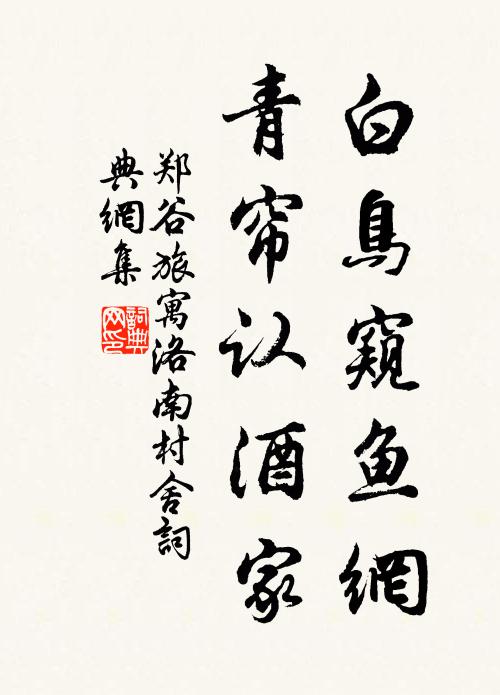 白鳥窺鱼網
青帘认酒家
郑谷旅寓洛南村舍詞
典網集
詞典
网印